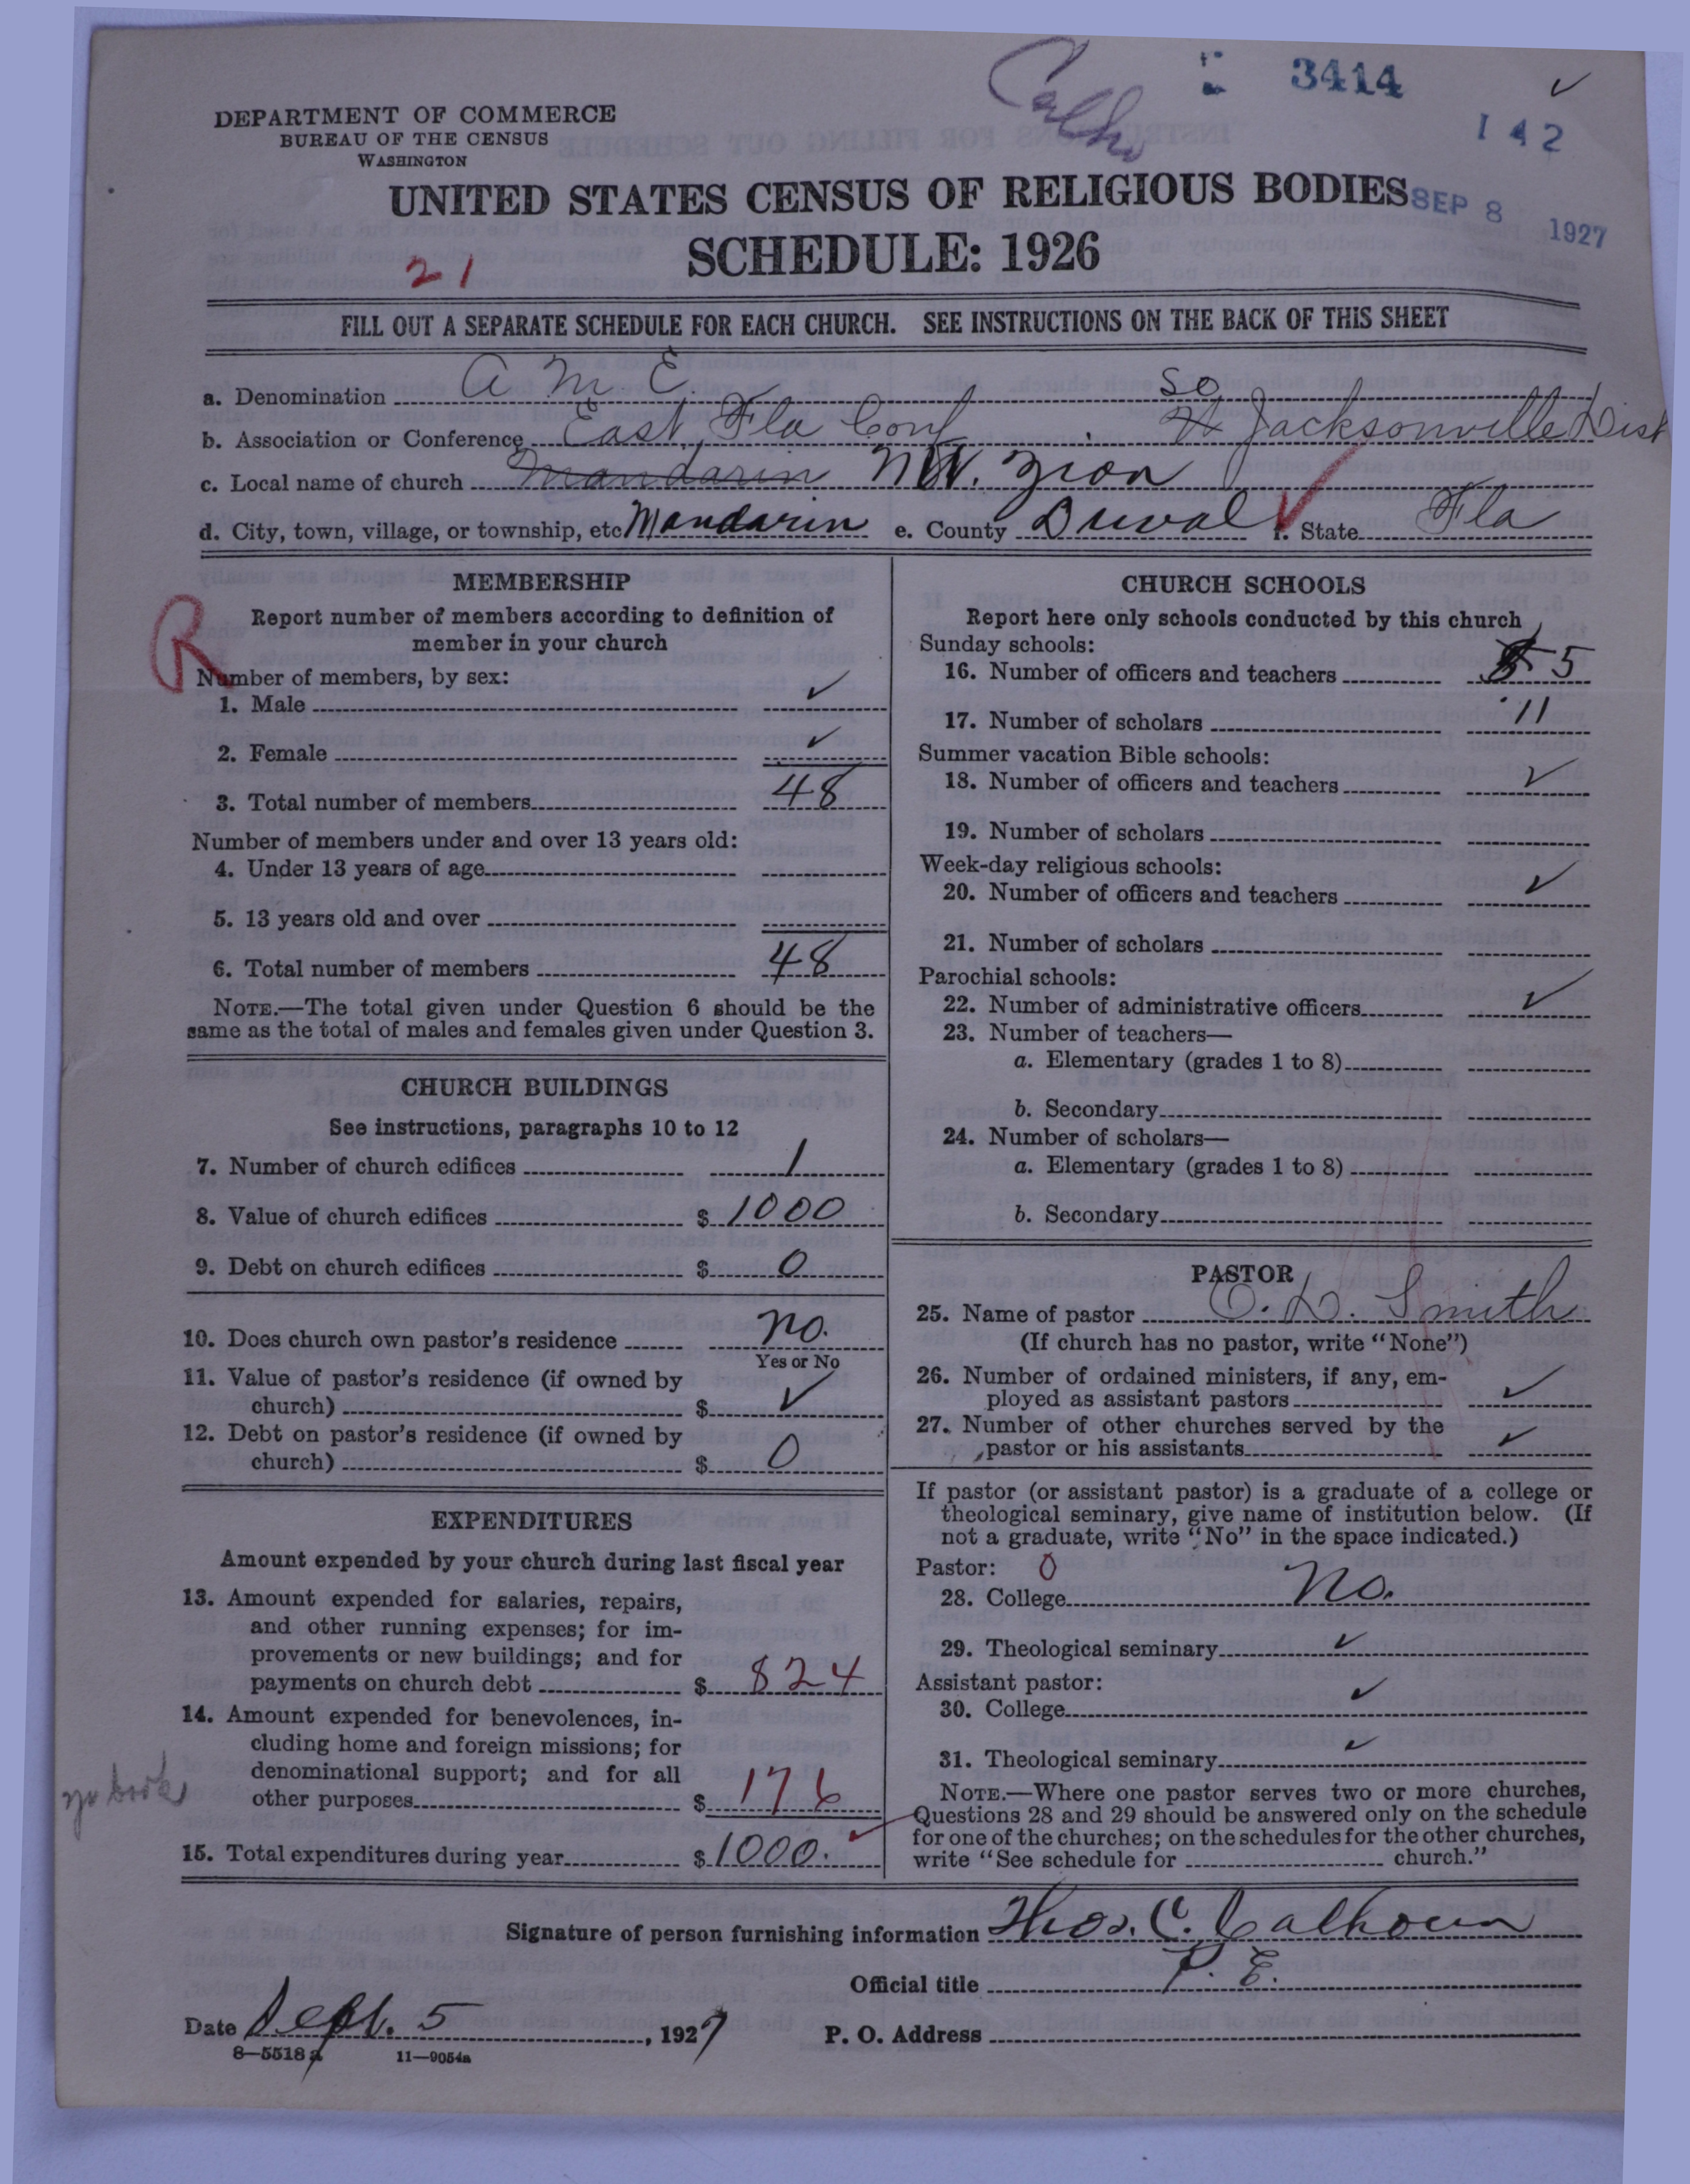 Calho
3414
142
DEPARTMENT OF COMMERCE
BUREAU OF THE CENSUS
WASHINGTON
UNITED STATES CENSUS OF RELIGIOUS BODIES
SEP 8 1927
SCHEDULE: 1926
21
FILL OUT A SEPARATE SCHEDULE FOR EACH CHURCH. SEE INSTRUCTIONS ON THE BACK OF THIS SHEET
a. Denomination A M E.
So
b. Association or Conference East Fla Conf. Jacksonville Dist
c. Local name of church Mandarin Mt. Zion
d. City, town, village, or township, etc Mandarin e. County Duval f. State Fla
MEMBERSHIP
Report number of members according to definition of
member in your church
R
Number of members, by sex:
1. Male ✓
2. Female ✓
3. Total number of members 48
Number of members under and over 13 years old:
4. Under 13 years of age
5. 13 years old and over
6. Total number of members 48
NOTE.—The total given under Question 6 should be the
same as the total of males and females given under Question 3.
CHURCH BUILDINGS
See instructions, paragraphs 10 to 12
7. Number of church edifices 1
8. Value of church edifices $ 1000
9. Debt on church edifices $ 0
10. Does church own pastor's residence no.
Yes or No
11. Value of pastor's residence (if owned by
church) $ ✓
12. Debt on pastor's residence (if owned by
church) $ 0
EXPENDITURES
Amount expended by your church during last fiscal year
13. Amount expended for salaries, repairs,
and other running expenses; for im-
provements or new buildings; and for
payments on church debt $ 824
14. Amount expended for benevolences, in-
cluding home and foreign missions; for
denominational support; and for all
other purposes $ 176
no book
15. Total expenditures during year $ 1000.
CHURCH SCHOOLS
Report here only schools conducted by this church
Sunday schools:
16. Number of officers and teachers 5
17. Number of scholars 11
Summer vacation Bible schools:
18. Number of officers and teachers ✓
19. Number of scholars
Week-day religious schools:
20. Number of officers and teachers ✓
21. Number of scholars
Parochial schools:
22. Number of administrative officers ✓
23. Number of teachers—
a. Elementary (grades 1 to 8)
b. Secondary
24. Number of scholars—
a. Elementary (grades 1 to 8)
b. Secondary
PASTOR
25. Name of pastor O. D. Smith
(If church has no pastor, write "None")
26. Number of ordained ministers, if any, em-
ployed as assistant pastors ✓
27. Number of other churches served by the
pastor or his assistants ✓
If pastor (or assistant pastor) is a graduate of a college or
theological seminary, give name of institution below. (If
not a graduate, write "No" in the space indicated.)
Pastor: 0
28. College no.
29. Theological seminary ✓
Assistant pastor:
30. College ✓
31. Theological seminary ✓
NOTE.—Where one pastor serves two or more churches,
Questions 28 and 29 should be answered only on the schedule
for one of the churches; on the schedules for the other churches,
write "See schedule for church."
Signature of person furnishing information Thos. C. Calhoun
Official title P. E.
Date Sept. 5, 1927 P. O. Address
8—5518a 11—9054a